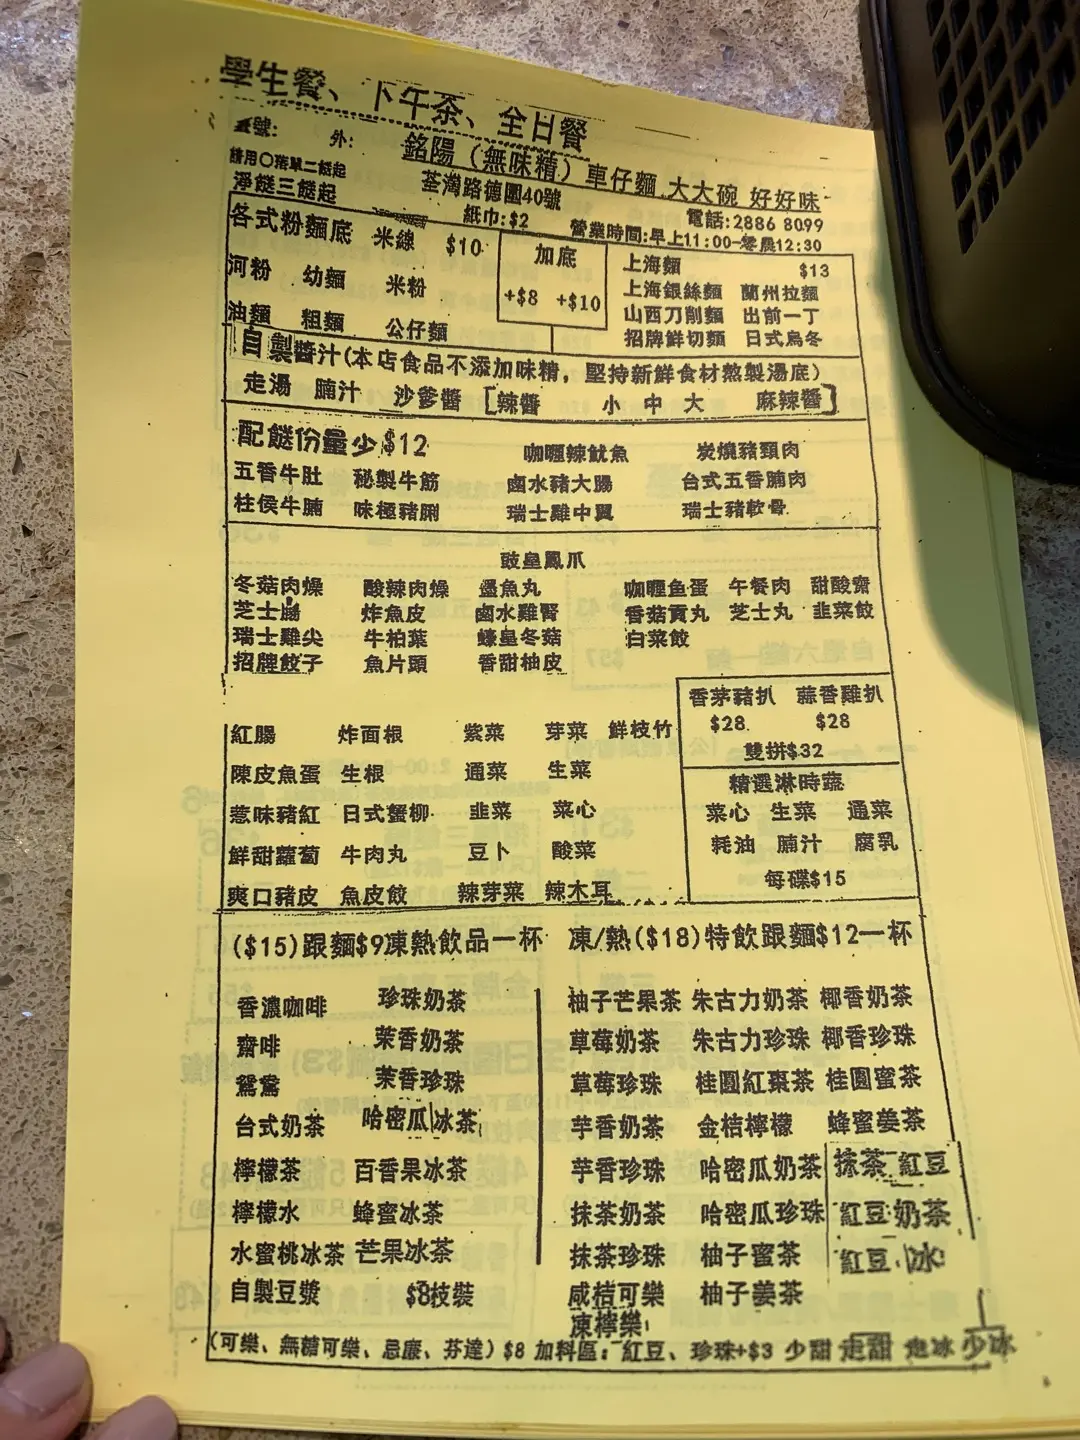 學生餐、下午茶、全日餐
號: 外: 銘陽(無味精)車仔麵 大大碗 好好味
請用〇落單二餸起
淨餸三餸起 荃灣路德圍40號 電話:2886 8099
紙巾:$2 營業時間:早上11:00-零晨12:30
各式粉麵底 米線 $10 加底 上海麵 $13
河粉 幼麵 米粉 +$8 +$10 上海銀絲麵 蘭州拉麵
山西刀削麵 出前一丁
油麵 粗麵 公仔麵 招牌鮮切麵 日式烏冬
自製醬汁(本店食品不添加味精, 堅持新鮮食材熬製湯底)
走湯 腩汁 沙爹醬 [辣醬 小 中 大 麻辣醬]
配餸份量少$12 咖喱辣魷魚 炭燒豬頸肉
五香牛肚 秘製牛筋 鹵水豬大腸 台式五香腩肉
柱侯牛腩 味極豬脷 瑞士雞中翼 瑞士豬軟骨
豉皇鳳爪
冬菇肉燥 酸辣肉燥 墨魚丸 咖喱鱼蛋 午餐肉 甜酸齋
芝士腸 炸魚皮 鹵水雞腎 香菇貢丸 芝士丸 韭菜餃
瑞士雞尖 牛柏葉 蠔皇冬菇 白菜餃
招牌餃子 魚片頭 香甜柚皮
香茅豬扒 蒜香雞扒
$28 $28
紅腸 炸面根 紫菜 芽菜 鮮枝竹 雙拼$32
陳皮魚蛋 生根 通菜 生菜 精選淋時蔬
惹味豬紅 日式蟹柳 韭菜 菜心 菜心 生菜 通菜
鮮甜蘿蔔 牛肉丸 豆卜 酸菜 耗油 腩汁 腐乳
爽口豬皮 魚皮餃 辣芽菜 辣木耳 每碟$15
($15)跟麵$9凍熱飲品一杯 凍/熱($18)特飲跟麵$12一杯
香濃咖啡 珍珠奶茶 柚子芒果茶 朱古力奶茶 椰香奶茶
齋啡 茉香奶茶 草莓奶茶 朱古力珍珠 椰香珍珠
鴛鴦 茉香珍珠 草莓珍珠 桂圓紅棗茶 桂圓蜜茶
台式奶茶 哈密瓜冰茶 芋香奶茶 金桔檸檬 蜂蜜姜茶
檸檬茶 百香果冰茶 芋香珍珠 哈密瓜奶茶 抹茶 紅豆
檸檬水 蜂蜜冰茶 抹茶奶茶 哈密瓜珍珠 紅豆奶茶
水蜜桃冰茶 芒果冰茶 抹茶珍珠 柚子蜜茶 紅豆冰
自製豆漿 $8枝裝 咸桔可樂 柚子姜茶
凍檸樂
(可樂、無糖可樂、忌廉、芬達) $8 加料區: 紅豆、珍珠+$3 少甜 走甜 走冰 少冰